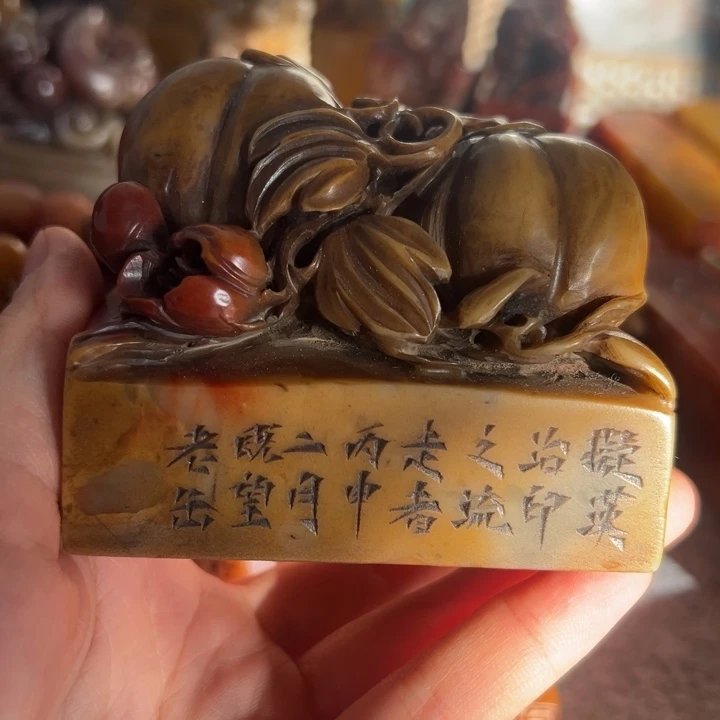 擬漢
治印
之疏
走者
丙申
二月
既望
老缶